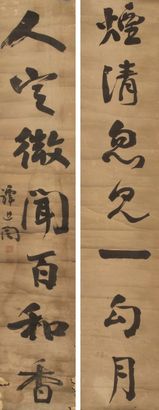 煙清忽見一勾月
人定微聞百和香
譚延闓